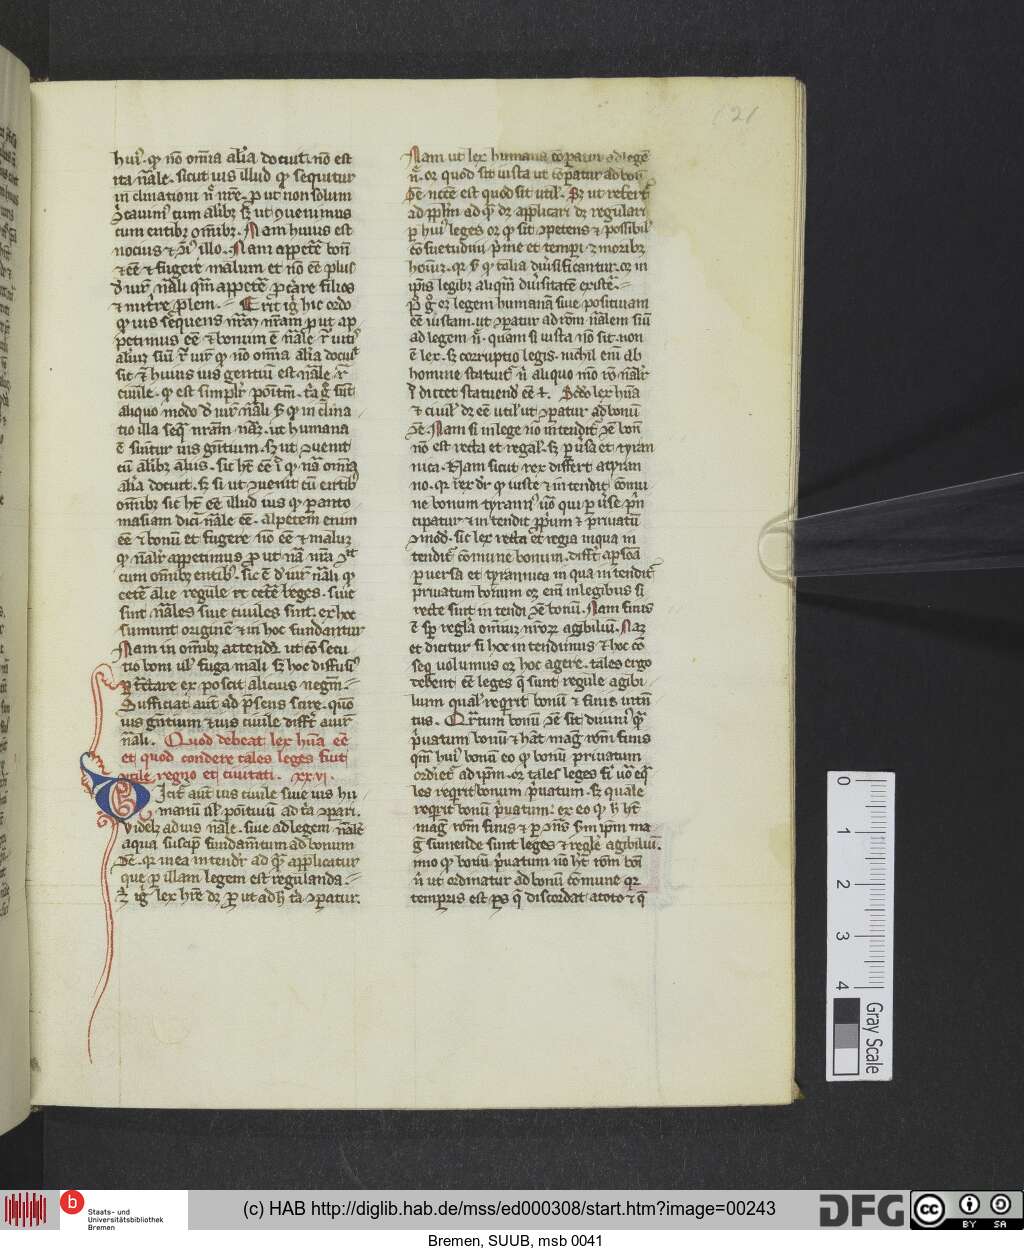 huiꝰ. ꝙ nō omīa aīalia docuit. nō est
ita nāle. sicut ius illud ꝙ sequitur
inclinationī nr̄e. ꝓut non solum
ꝯuenimꝰ cum aīalibꝫ sꝫ ut ꝯuenimus
cum entibꝫ om̄ibꝫ. Nam huius est
nocius illo. Nam appetē bonū
⁊ eē ⁊ fugere malum et nō eē plus
d̄ iur̄ nāli qm̄ appetē ꝓcāre filios
⁊ nutrīre ꝓlem. Erit igͥ hic ordo
ꝙ ius sequens nām nr̄am ꝓut ap
petimus eē ⁊ bonum ē nāle
ꝙ nō omīa aīalia docuit
sic ē huius ius gentium est nāle
ciuile. ꝙ est simplr̄
aliquo modo d̄ iur̄ nāli sꝫ ꝙ inclina
tio illa seqͥ nām ut humana
ē ius gn̄tium. sꝫ ut ꝯuenit
cū aīalibꝫ aliis. sic hꝫ eē ꝙ nā omīa
aīalia docuit. sꝫ si ut ꝯuenit cū entibꝫ
om̄ibꝫ sic hꝫ eē illud ius ꝙ ꝑ anto
masiam dici nāle eē. appetere enim
eē ⁊ bonū et fugere nō eē ⁊ malum
ꝙ nālr̄ appetimus ꝓut nā nr̄a
cum om̄ibꝫ entibꝫ. sic ē d̄ iur̄ nāli ꝙ
cetē alie regule et cetē leges. siue
sint nāles siue ciuiles sint. ex hoc
sumunt originē ⁊ in hoc fundantur
Nam in om̄ibꝫ attendit̄ ut cōsecu
tio boni ul̄ fuga mali sꝫ hoc diffusiꝰ
ꝑtractare exposcit alicuius negm̄.
Sufficiat aut̄ ad p̄sens scire. quō
ius gn̄tium ⁊ ius ciuile diffr̄t a iur̄
nāli. Quod debeat lex hūa eē
et quod condere tales leges fuit
utile regno et ciuitati. xxvi.
Dicit aut̄ ius ciuile siue ius hu
manū ul̄ poītiuū ad t̄ia ꝯpari.
Videlꝫ ad ius nāle. siue ad legem nālē
a qua suscip̄ fundam̄tum ad bonum
ꝯē. qꝫ in ea intendit̄ ad ꝙ applicatur
que ꝑ illam legem est regulanda.
igͥ lex hēre dꝫ ꝓut ad h̄ t̄ia ꝯpatur.
Nam ut lex humana cōparatur ad legē
nāͥ. oꝫ quod sit iusta ut cōpatur ad bonū
ꝯē nccē est quod sit util̄. Sꝫ ut refert̄
ad ppl̄m ad quē dꝫ applicari dꝫ regulari
ꝑ huiꝰ leges oꝫ ꝙ sit ꝯpetens ⁊ possibil̄
cōsuetudini pr̄ie et tempori ⁊ moribꝫ
hoīum. qꝫ sꝫ ꝙ talia diuersificantur. oꝫ in
ip̄is legibꝫ aliquā diuersitatē existē.
Pͦ gͦ oꝫ legem humanā siue positiuam
eē iustam. ut ꝯpatur ad rōem nālem siue
ad legem nāͥ. quam si iusta nō sit. non
ē lex. sꝫ corruptio legis. nichil eni ab
homine statuit̄ nͥ aliquo mō rō nālis
ul̄ dictet statuend̄ eē ⁊c. Scdͦo lex hūa
⁊ ciuil̄ dꝫ eē util̄ ut ꝯpatur ad bonū
ꝯē. Nam si in lege nō intendit̄ ꝯē bonū
nō est recta et regal̄. sꝫ ꝑuersa et tyran
nica. Nam sicut rex differt a tyran
no. qꝫ rex dr̄ qͥ iuste ⁊ intendit cōmu
ne bonum. tyrannꝰ uͦ qui ꝑuerse prin
cipatur ⁊ intendit ꝓprium ⁊ priuatū
ꝯmod̄. sic lex recta et regia in qua in
tendit̄ cōmune bonum. differt̄ a ꝑ
ꝑuersa et tyrannica in qua intendit̄
priuatum bonum oꝫ enī in legibus si
recte sint intendi ꝯē bonū. Nam finis
ē sꝑ regula omnium nr̄orꝫ agibiliū. Naꝫ
et dicitur si hoc intendimus ⁊ hoc cō
seqͥ uolumus oꝫ hoc agere. tales ergo
debent eē leges q̄ sunt regule agibi
lium qual̄ reqrit bonū ⁊ finis inten
tus. bonū ꝯē sit diuiniꝰ quā
pͥuatum bonū ⁊ hat maḡ rōem finis
qm̄ huiꝰ bonū eo ꝙ bonū priuatum
ordiet̄ ad ip̄m. oꝫ tales leges fi
les reqrit bonum pͥuatum. sꝫ quale
reqrit bonū pͥuatum: ex eo ꝙ hꝫ
maḡ rōem finis ⁊
sumende sunt leges ⁊ regule agibiliū.
imo ꝙ bonū pͥuatum nō hꝫ rōem boni
nͥ ut ordinatur ad bonū cōmune qꝫ
temperis est ꝑs q̄ discordat a toto ⁊ q̄
121
0
1
2
3
4
Gray Scale
Staats- und
Universitätsbibliothek
Bremen
(c) HAB http://diglib.hab.de/mss/ed000308/start.htm?image=00243
DFG
cc BY SA
Bremen, SUUB, msb 0041